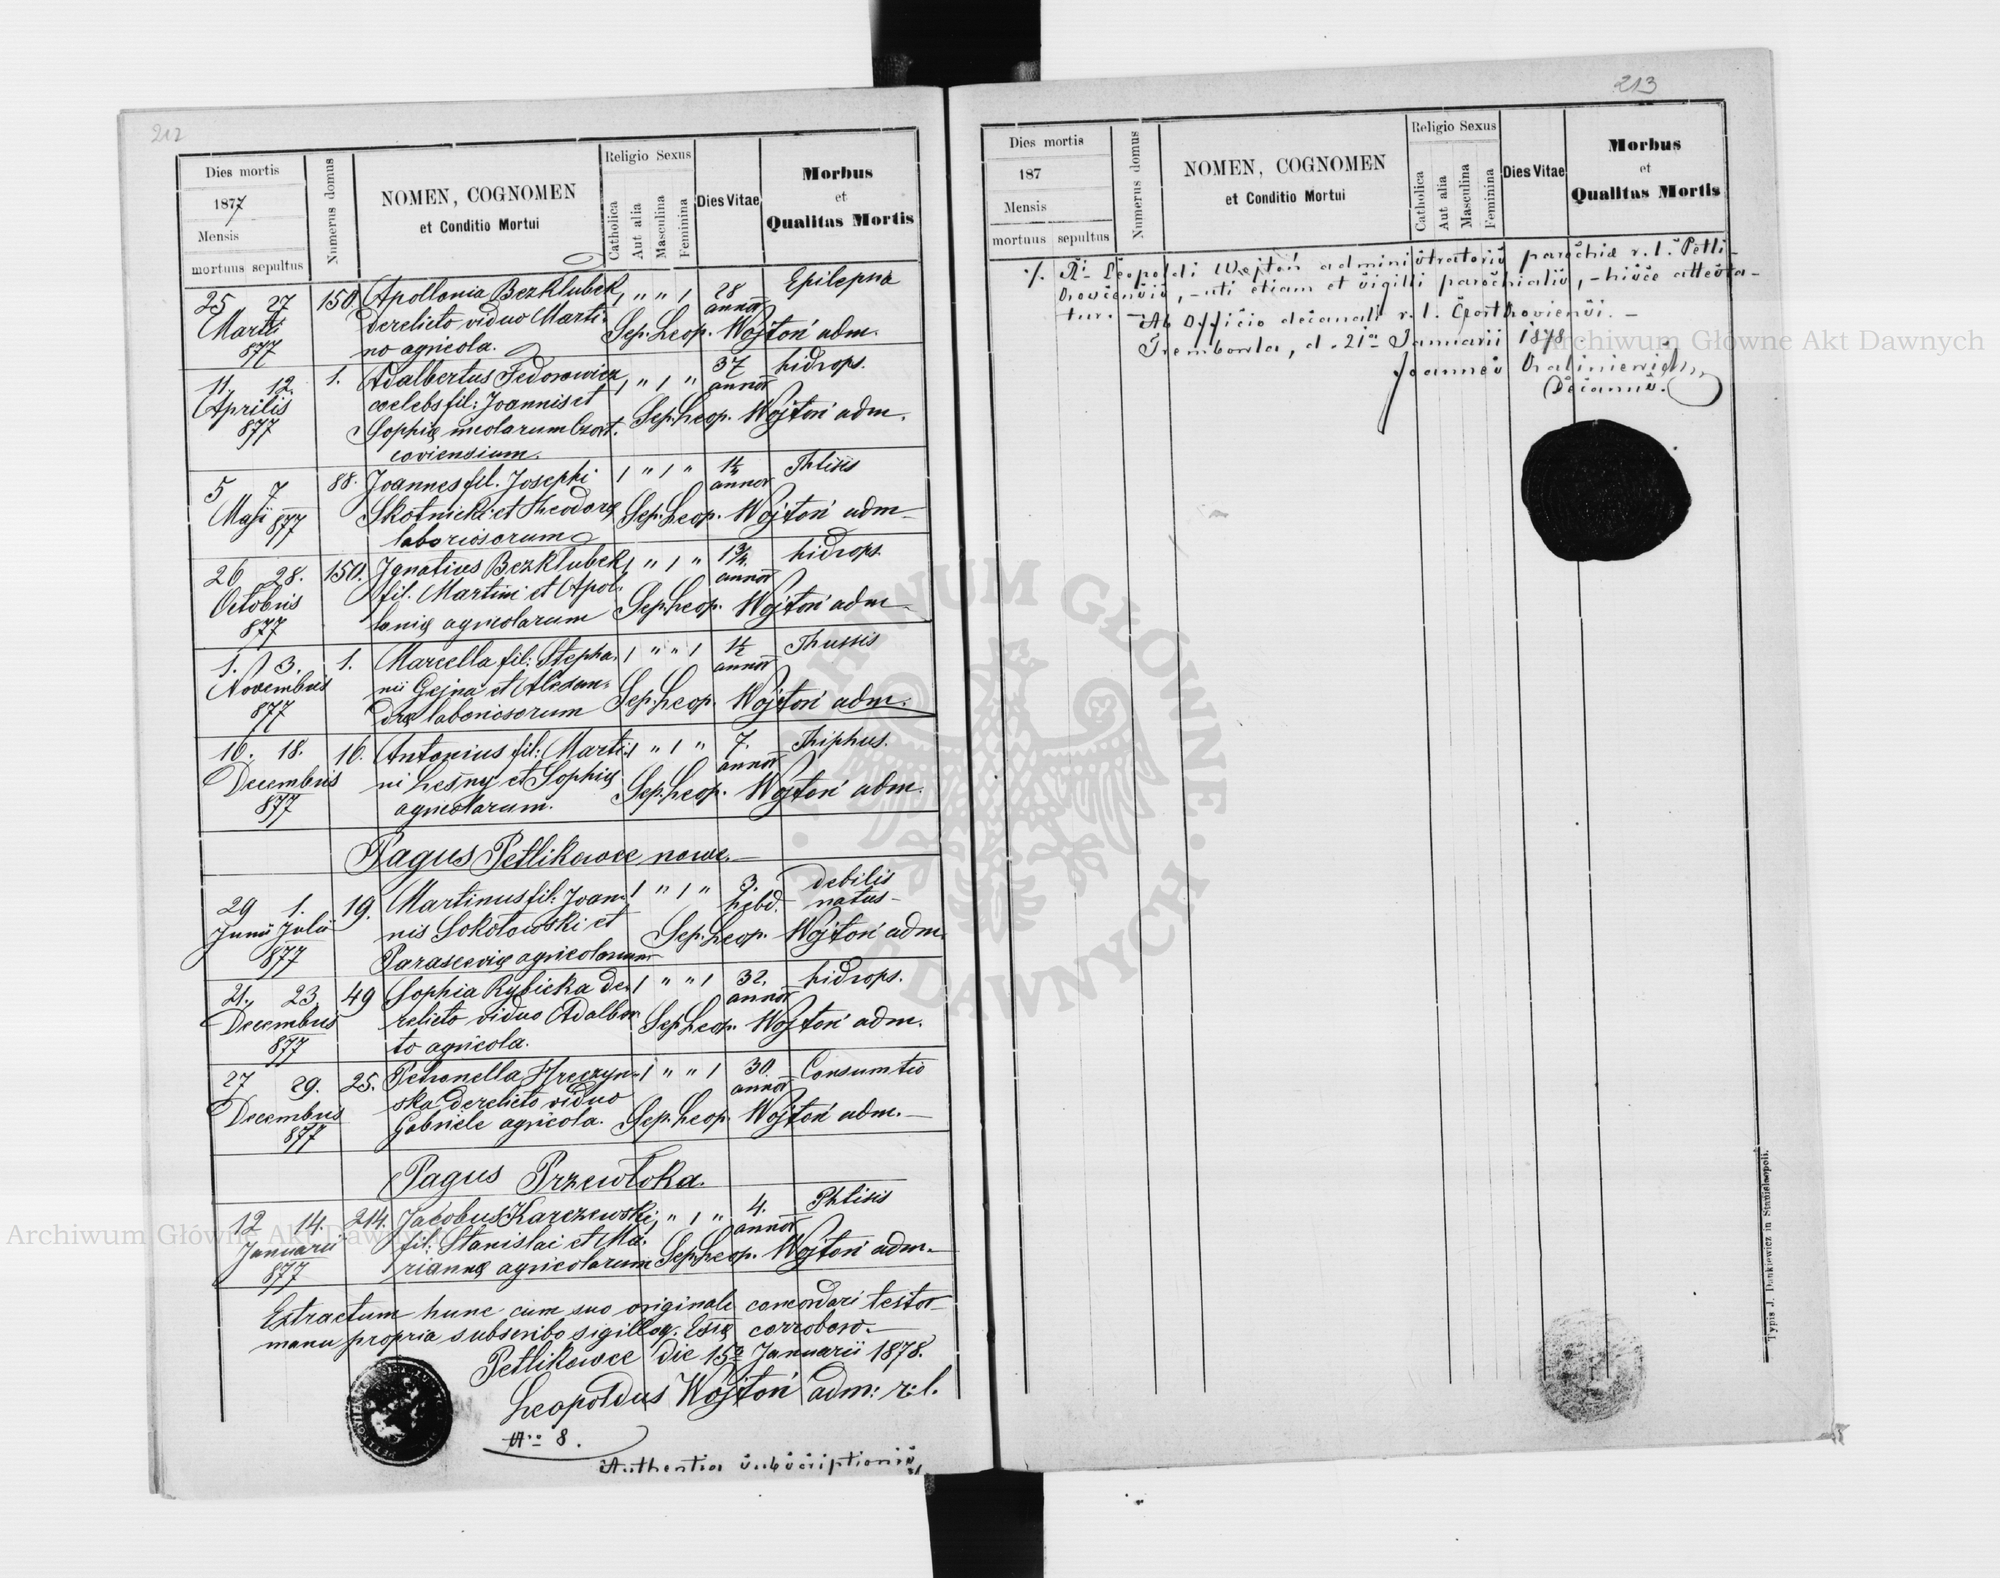 212
Dies mortis
1877
Mensis
mortuus sepultus
Numerus domus
NOMEN, COGNOMEN
et Conditio Mortui
Religio Sexus
Catholica
Aut alia
Masculina
Feminina
Dies Vitae
Morbus
et
Qualitas Mortis
25 27 150 Apollonia Bezklubek 1 " " 1 28 Epilepsia
Martii derelicto viduo Marti- annor
877 no agricola. Sep. Leop. Wojtoń adm.
11. 12. 1. Adalbertus Fedorowicz 1 " 1 " 37 hidrops.
Aprilis coelebs fil: Joannis et annor
877 Sophię incolarum Czort- Sep. Leop. Wojtoń adm.
coviensium.
5 7 88. Joannes fil. Josephi 1 " 1 " annor Thtisis
Maji 877 Skotnicki et Theodorę Sep. Leop. Wojtoń adm
laboriosorum
26 28. 150. Ignatius Bezklubek 1 " 1 " 1 3/4 hidrops.
Octobris fil. Martini et Apol- annor
877 lonię agricolarum Sep. Leop. Wojtoń adm
1. 3. 1. Marcella fil: Stepha- 1 " " 1 1/2 Thussis
Novembris nii Gejna et Alexan- annor
877 drę laboriosorum Sep. Leop. Wojtoń adm.
16. 18. 16. Antonius fil: Marti- 1 " 1 " 7. Thiphus.
Decembris ni Leśny et Sophię annor
877 agricolarum. Sep. Leop. Wojtoń adm.
Pagus Petlikowce nowe.
29 1. 19. Martinus fil: Joan- 1 " 1 " 3. debilis
Junii Julii nis Sokołowski et hebd. natus
877 Parascevię agricolarum Sep. Leop. Wojtoń adm.
21. 23. 49 Sophia Rybicka de- 1 " " 1 32. hidrops.
Decembris relicto viduo Adalber- annor
877 to agricola. Sep. Leop. Wojtoń adm.
27 29. 25. Petronella Hreczyn- 1 " " 1 30. Consumtio
Decembris ska derelicto viduo annor
877 Gabriele agricola. Sep. Leop. Wojtoń adm.
Pagus Przewłoka.
12 14. 214. Jacobus Karczewski 1 " 1 " 4. Phtisis
Januarii fil: Stanislai et Ma- annor
877 riannę agricolarum Sep. Leop. Wojtoń adm.
Extractum hunc cum suo originale concordari testor
manu propria subscribo sigilloq. Esię corroboro.
Petlikowce die 15a Januarii 1878.
Leopoldus Wojtoń adm: r: l.
No 8.
Authentia subscriptionis
213
Dies mortis
187
Mensis
mortuus sepultus
Numerus domus
NOMEN, COGNOMEN
et Conditio Mortui
Religio Sexus
Catholica
Aut alia
Masculina
Feminina
Dies Vitae
Morbus
et
Qualitas Mortis
·/. Leopoldi Wojtoń administratoris parochiæ r. l. Petli-
kovcensis, - uti etiam et sigilli parochialis, - hisce attesta-
tur. -
Ab Officio decanali r. l. Czortkoviensi. -
Trembowla, d. 21a Januarii 1878
Joannes
Decanus.
Typis J. Dankiewicz in Stanislaopoli.
Archiwum Główne Akt Dawnych
Archiwum Główne Akt Dawnych
ARCHIWUM GŁÓWNE AKT DAWNYCH